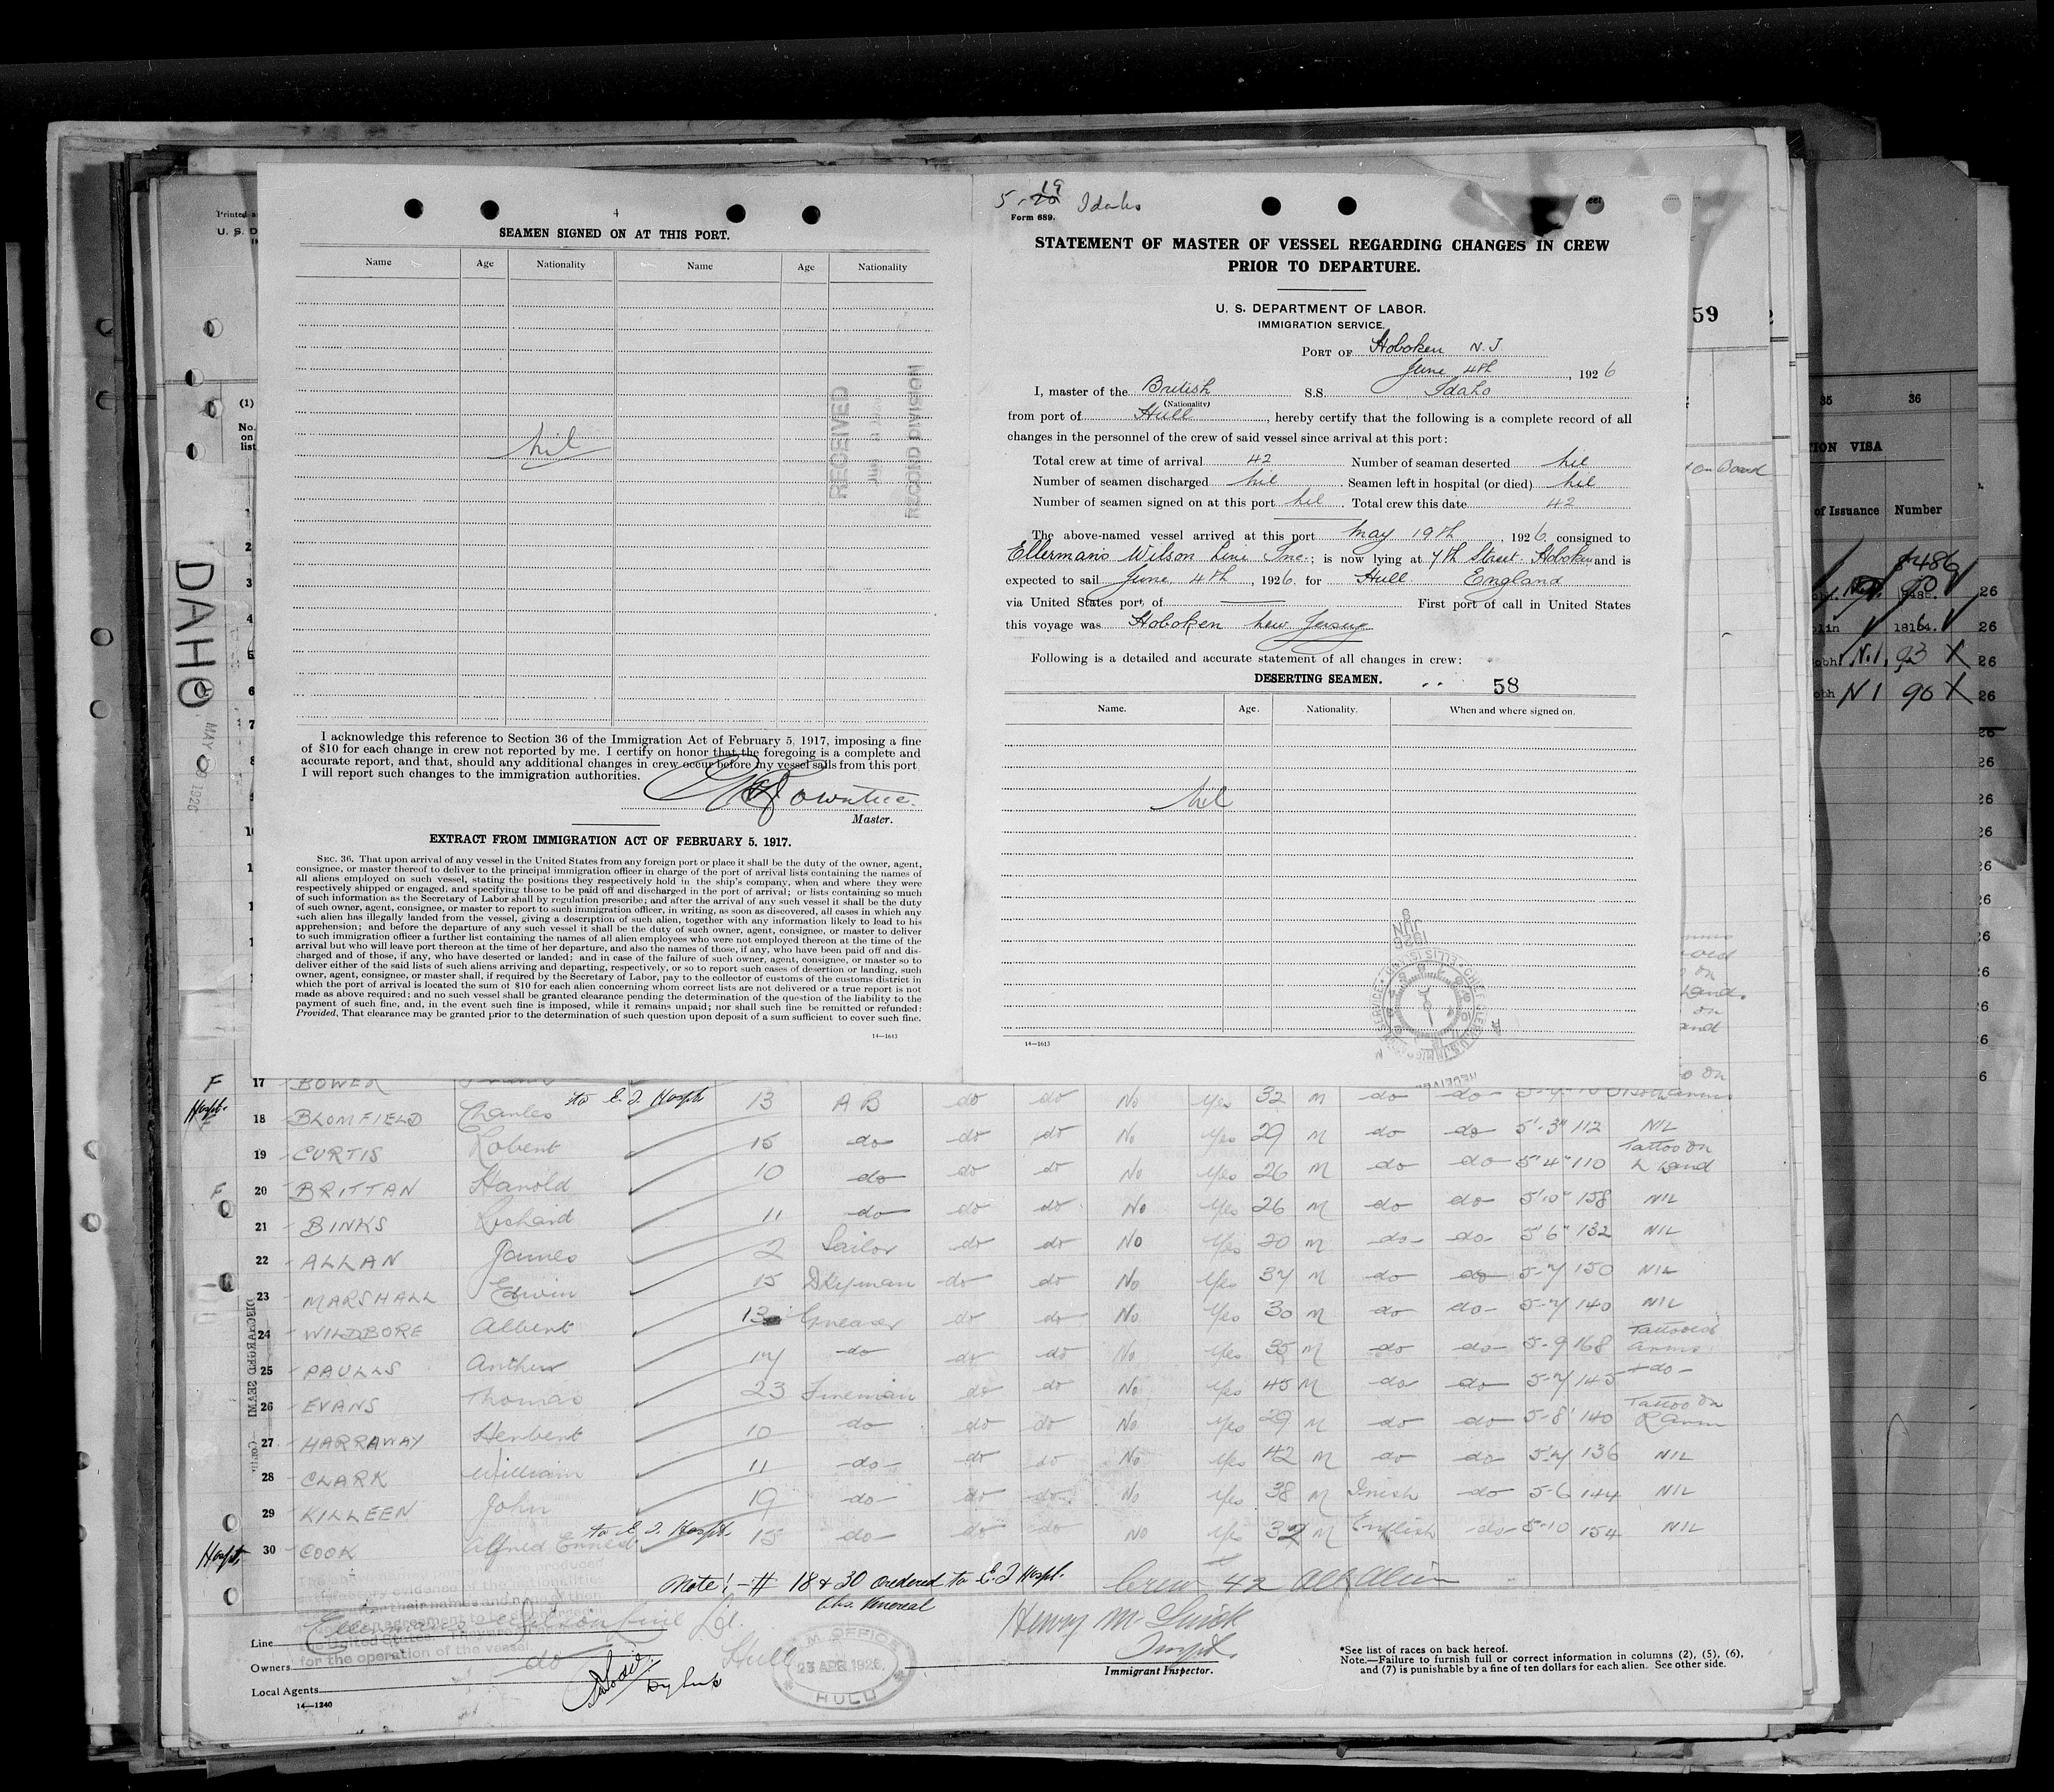 4
SEAMEN SIGNED ON AT THIS PORT.
Name Age Nationality Name Age Nationality
nil
RECEIVED
RECORD DIVISION
I acknowledge this reference to Section 36 of the Immigration Act of February 5, 1917, imposing a fine
of $10 for each change in crew not reported by me. I certify on honor that the foregoing is a complete and
accurate report, and that, should any additional changes in crew occur before my vessel sails from this port
I will report such changes to the immigration authorities.
Master.
EXTRACT FROM IMMIGRATION ACT OF FEBRUARY 5, 1917.
SEC. 36. That upon arrival of any vessel in the United States from any foreign port or place it shall be the duty of the owner, agent,
consignee, or master thereof to deliver to the principal immigration officer in charge of the port of arrival lists containing the names of
all aliens employed on such vessel, stating the positions they respectively hold in the ship's company, when and where they were
respectively shipped or engaged, and specifying those to be paid off and discharged in the port of arrival; or lists containing so much
of such information as the Secretary of Labor shall by regulation prescribe; and after the arrival of any such vessel it shall be the duty
of such owner, agent, consignee, or master to report to such immigration officer, in writing, as soon as discovered, all cases in which any
such alien has illegally landed from the vessel, giving a description of such alien, together with any information likely to lead to his
apprehension; and before the departure of any such vessel it shall be the duty of such owner, agent, consignee, or master to deliver
to such immigration officer a further list containing the names of all alien employees who were not employed thereon at the time of the
arrival but who will leave port thereon at the time of her departure, and also the names of those, if any, who have been paid off and dis-
charged and of those, if any, who have deserted or landed; and in case of the failure of such owner, agent, consignee, or master so to
deliver either of the said lists of such aliens arriving and departing, respectively, or so to report such cases of desertion or landing, such
owner, agent, consignee, or master, shall, if required by the Secretary of Labor, pay to the collector of customs of the customs district in
which the port of arrival is located the sum of $10 for each alien concerning whom correct lists are not delivered or a true report is not
made as above required; and no such vessel shall be granted clearance pending the determination of the question of the liability to the
payment of such fine, and, in the event such fine is imposed, while it remains unpaid; nor shall such fine be remitted or refunded:
Provided, That clearance may be granted prior to the determination of such question upon deposit of a sum sufficient to cover such fine.
14—1613
5-19 Idaho
Form 689.
STATEMENT OF MASTER OF VESSEL REGARDING CHANGES IN CREW
PRIOR TO DEPARTURE.
U. S. DEPARTMENT OF LABOR.
IMMIGRATION SERVICE.
PORT OF Hoboken N.J
June 4th, 1926
I, master of the British S.S. Idaho
(Nationality)
from port of Hull, hereby certify that the following is a complete record of all
changes in the personnel of the crew of said vessel since arrival at this port:
Total crew at time of arrival 42 Number of seaman deserted nil
Number of seamen discharged nil Seamen left in hospital (or died) nil
Number of seamen signed on at this port nil Total crew this date 42
The above-named vessel arrived at this port May 19th, 1926, consigned to
Ellermans Wilson Line Inc.; is now lying at 7th Street Hoboken and is
expected to sail June 4th, 1926. for Hull England
via United States port of First port of call in United States
this voyage was Hoboken New Jersey
Following is a detailed and accurate statement of all changes in crew:
DESERTING SEAMEN. 58
Name. Age. Nationality. When and where signed on.
nil
14—1613
59
35 36
ION VISA
of Issuance Number
IDAHO
MAY 1926
17 BOWER
F
Hosp. 18 BLOMFIELD Charles to E. I. Hosph 13 AB do do No Yes 32 M do do
19 CURTIS Robert 15 do do do No Yes 29 M do do 5'-3" 112 NIL
F 20 BRITTAN Harold 10 do do do No Yes 26 M do do 5'4" 110 Tattoo on L Hand
21 BINKS Richard 11 do do do No Yes 26 M do do 5'10" 158 NIL
22 ALLAN James 2 Sailor do do No Yes 20 M do do 5'6" 132 NIL
23 MARSHALL Edwin 15 Dkyman do do No Yes 37 M do do 5-7 150 NIL
24 WILDBORE Albert 13 Greaser do do No Yes 30 M do do 5-7 140 NIL
25 PAULLS Arthur 17 do do do No Yes 35 M do do 5-9 168 Tattooed arms
26 EVANS Thomas 23 Fireman do do No Yes 45 M do do 5-7 145 do
27 HARRAWAY Herbert 10 do do do No Yes 29 M do do 5-8 140 Tattoo on R Arm
28 CLARK William 11 do do do No Yes 42 M do do 5-7 136 NIL
29 KILLEEN John 19 do do do No Yes 38 M Irish do 5-6 144 NIL
Hospt. 30 COOK Alfred Ernest to E. I. Hospt. 15 do do do No Yes 32 M English do 5-10 154 NIL
Note! - # 18 & 30 ordered to E. I Hospl. Crew 42 all Alien
Obs. Venereal
Line Ellermans Wilson Line Ld. Hull
Owners do
Local Agents
M. OFFICE
23 APR. 1926
HULL
Immigrant Inspector.
14—1240
*See list of races on back hereof.
Note.—Failure to furnish full or correct information in columns (2), (5), (6),
and (7) is punishable by a fine of ten dollars for each alien. See other side.